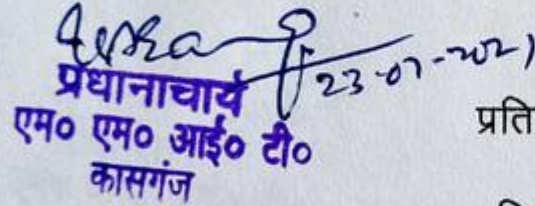 23-07-2021
प्रधानाचार्य
एम० एम० आई० टी०
कासगंज
प्रति